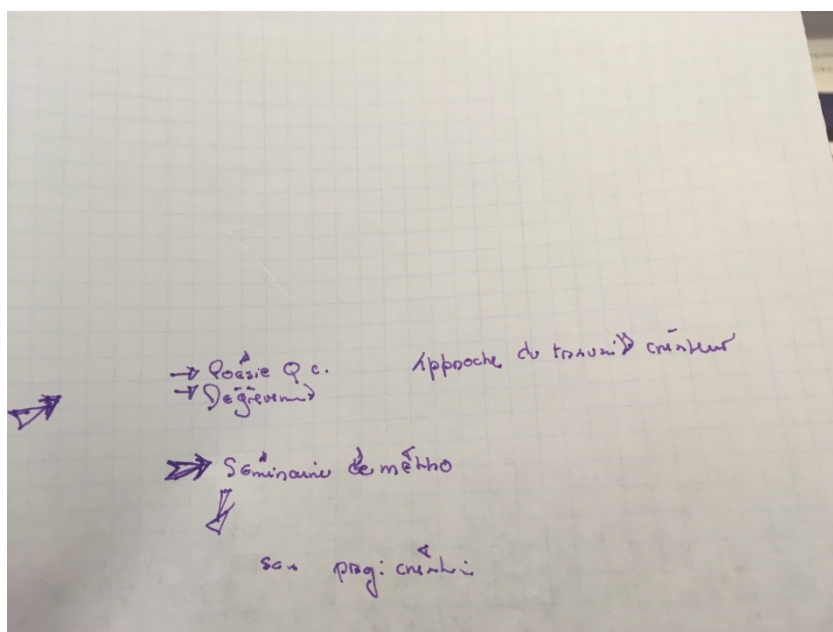 → Poésie Q c. Approche du travail créateur
→ Dégrèvement
Séminaire de métho
prog: créati